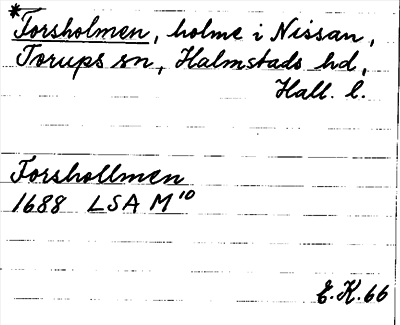 *Forsholmen, holme i Nissan,
Torups sn, Halmstads hd,
Hall. l.
Forshollmen
1688 LSA M¹⁰
E.K. 66